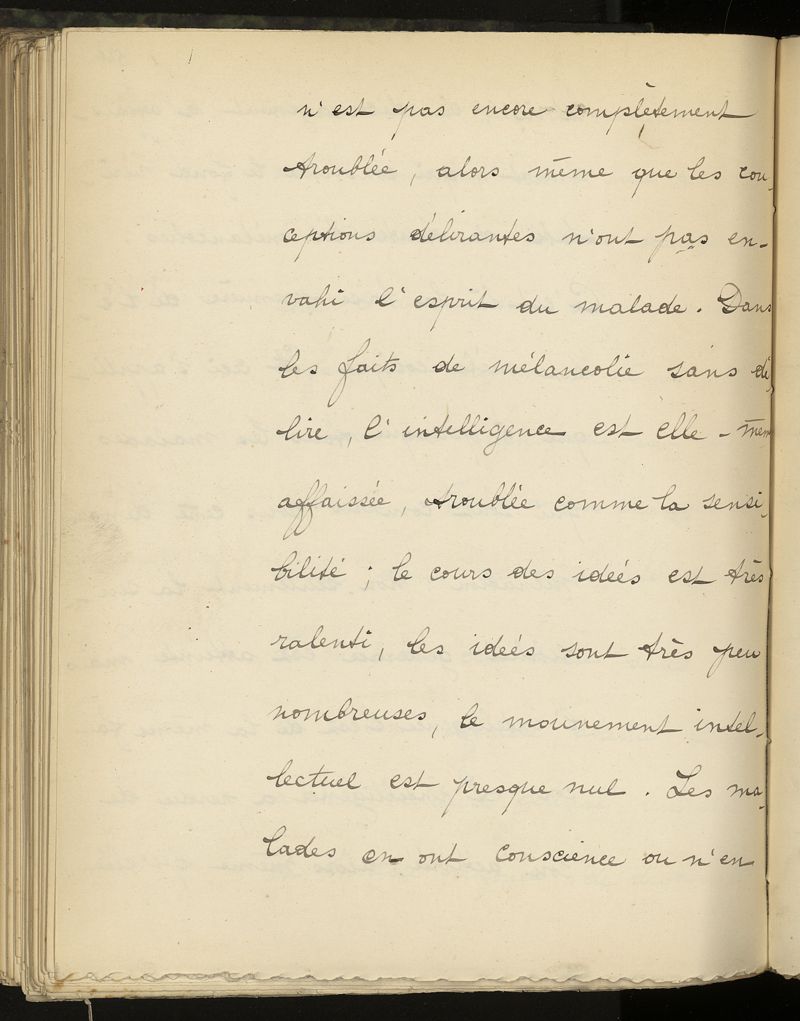 n'est pas encore complètement
troublée, alors même que les con-
ceptions délirantes n'ont pas en-
vahi l'esprit du malade. Dans
les faits de mélancolie sans dé-
lire, l'intelligence est elle-même
affaissée, troublée comme la sensi-
bilité ; le cours des idées est très
ralenti, les idées sont très peu
nombreuses, le mouvement intel-
lectuel est presque nul. Les ma-
lades en ont conscience ou n'en